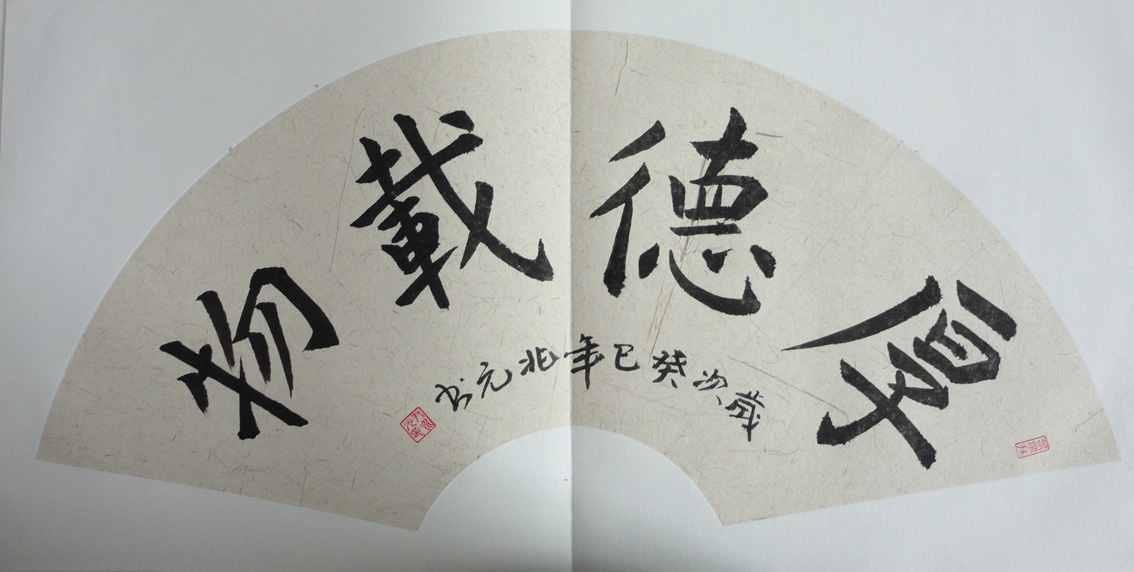 厚德載物
歲次癸巳年兆元书